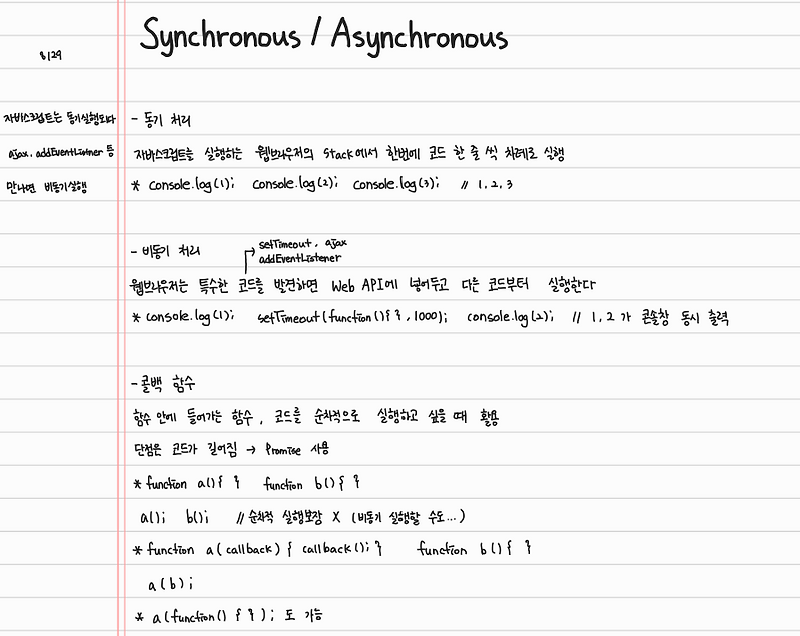 Synchronous / Asynchronous
8/29
자바스크립트는 동기실행되다
ajax, addEventListner 등
만나면 비동기실행
- 동기 처리
자바스크립트를 실행하는 웹브라우저의 Stack에서 한번에 코드 한 줄 씩 차례로 실행
* console.log(1); console.log(2); console.log(3); // 1, 2, 3
- 비동기 처리
setTimeout, ajax
addEventListener
웹브라우저는 특수한 코드를 발견하면 Web API에 넣어두고 다음 코드부터 실행한다
* console.log(1); setTimeout(function(){ }, 1000); console.log(2); // 1, 2 가 콘솔창 동시 출력
- 콜백 함수
함수 안에 들어가는 함수, 코드를 순차적으로 실행하고 싶을 때 활용
단점은 코드가 길어짐 → Promise 사용
* function a(){ } function b(){ }
a(); b(); // 순차적 실행보장 X (비동기 실행할 수도...)
* function a(callback) { callback(); } function b(){ }
a(b);
* a(function() { }); 도 가능